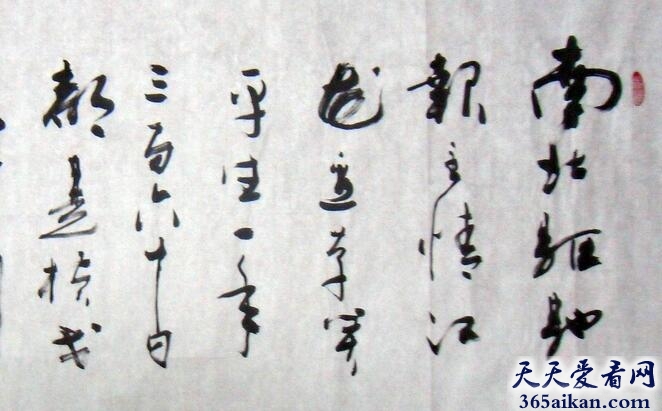 南北驅馳
報主情江
花邊草笑
平生一年
三百六十日
都是横戈
天天爱看网
365aikan.com